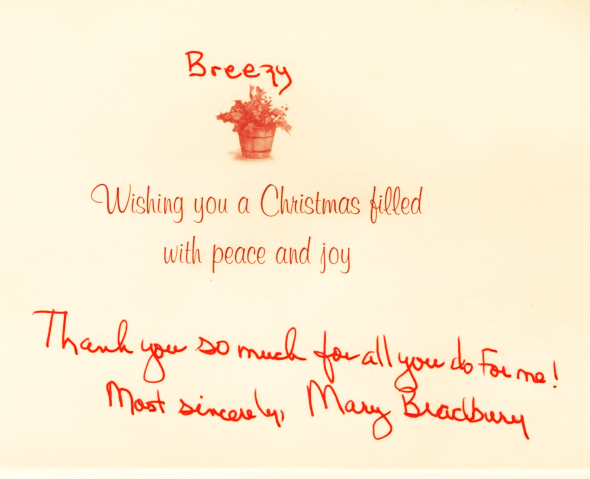 Breezy
Wishing you a Christmas filled
with peace and joy
Thank you so much for all you do for me!
Most sincerely, Mary Bradbury